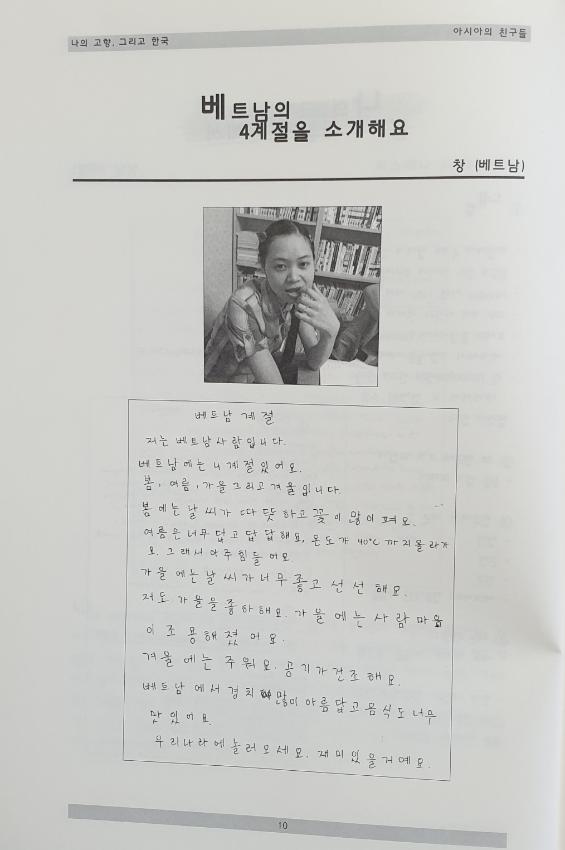 나의 고향, 그리고 한국
아시아의 친구들
베트남의
4계절을 소개해요
창 (베트남)
베트남 계절
저는 베트남사람입니다.
베트남에는 니계절있어요.
봄, 여름, 가을 그리고 겨울입니다.
봄에는 날씨가 따뜻하고 꽃이 많이 펴요.
여름은 너무 덥고 답답해요, 온도가 40°C 까지올라가
요. 그래서 아주힘들어요.
가을에는 날씨가너무 좋고 선선해요.
저도 가을을 좋아해요. 가을에는 사람마음
이 조용해졌어요.
겨울에는 추워요. 공기가건조해요.
베트남에서 경치 많이 아름답고 음식도너무
맛있어요.
우리나라에놀러오세요. 재미있을거예요.
10